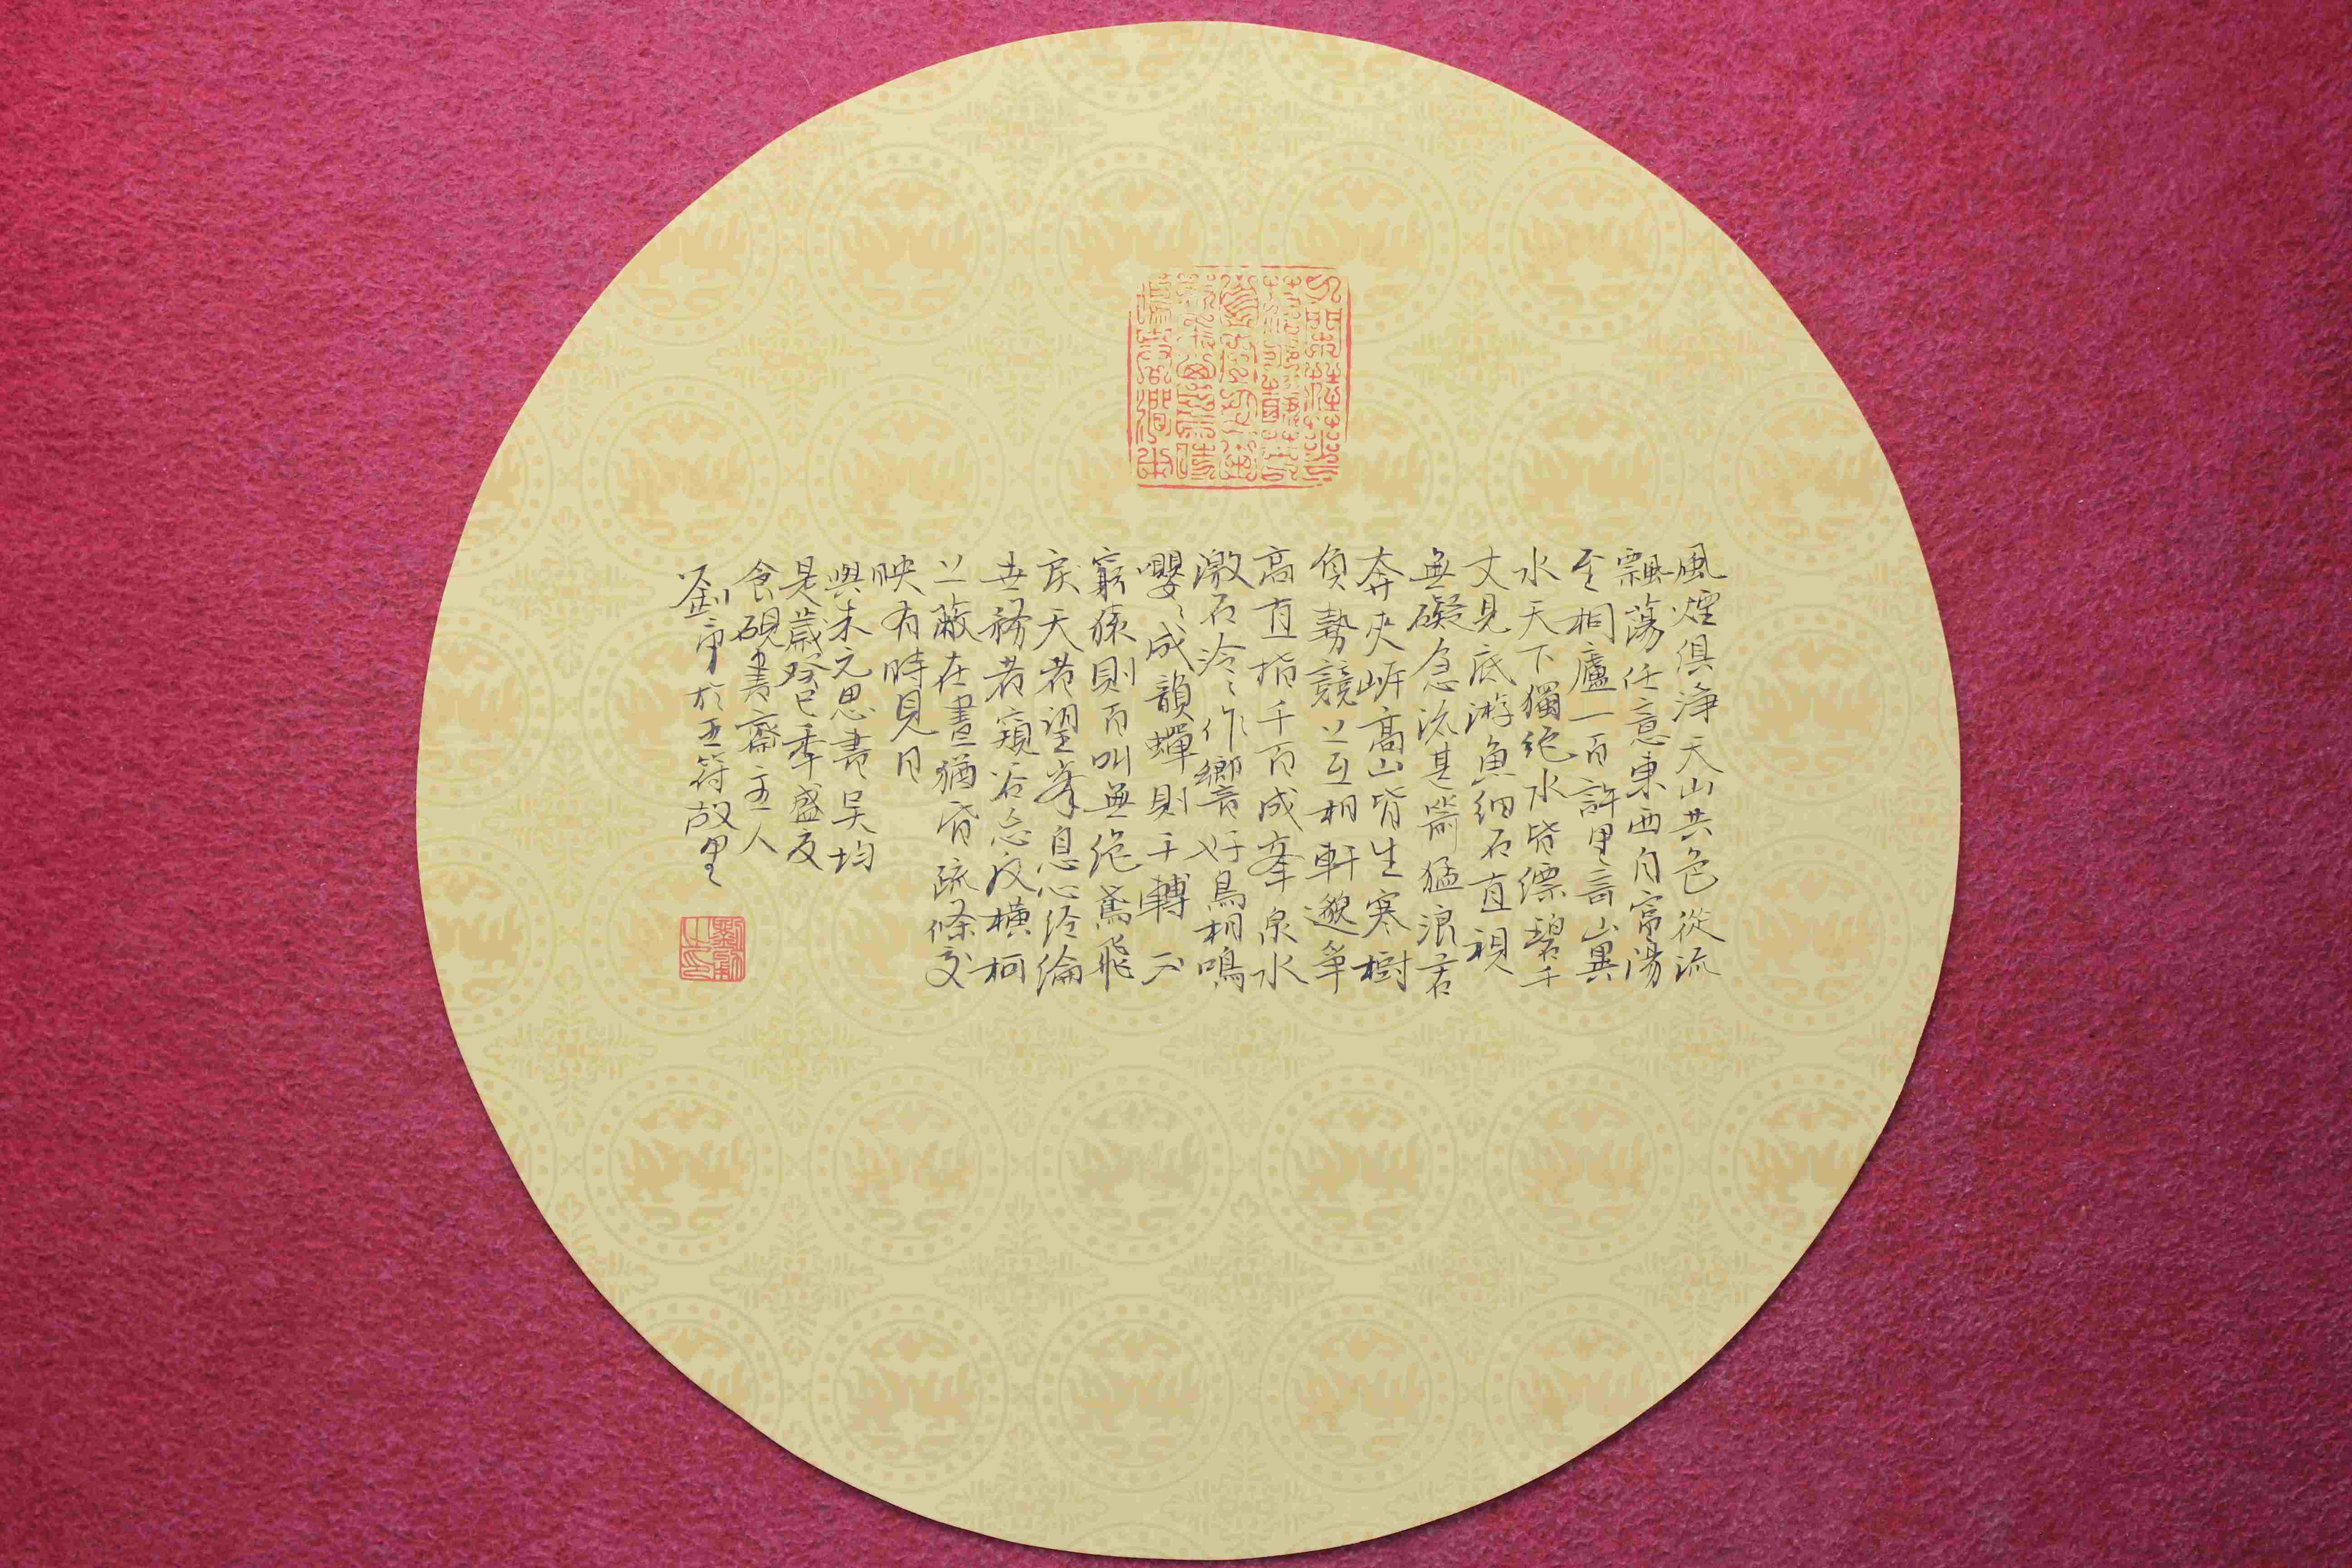 風煙俱淨天山共色從流
飄蕩任意東西自富陽
至桐廬一百許里奇山異
水天下獨絕水皆縹碧千
丈見底游魚細石直視
無礙急流甚箭猛浪若
奔夾岸高山皆生寒樹
負勢競上互相軒邈爭
高直指千百成峯泉水
激石泠〻作響好鳥相鳴
嚶〻成韻蟬則千轉不
窮猿則百叫無絕鳶飛
戾天者望峯息心經綸
世務者窺谷忘反橫柯
上蔽在晝猶昏疏條交
映有時見日
與朱元思書吳均
是歲癸巳季盛夏
食硯書齋主人
劉 於王符故里